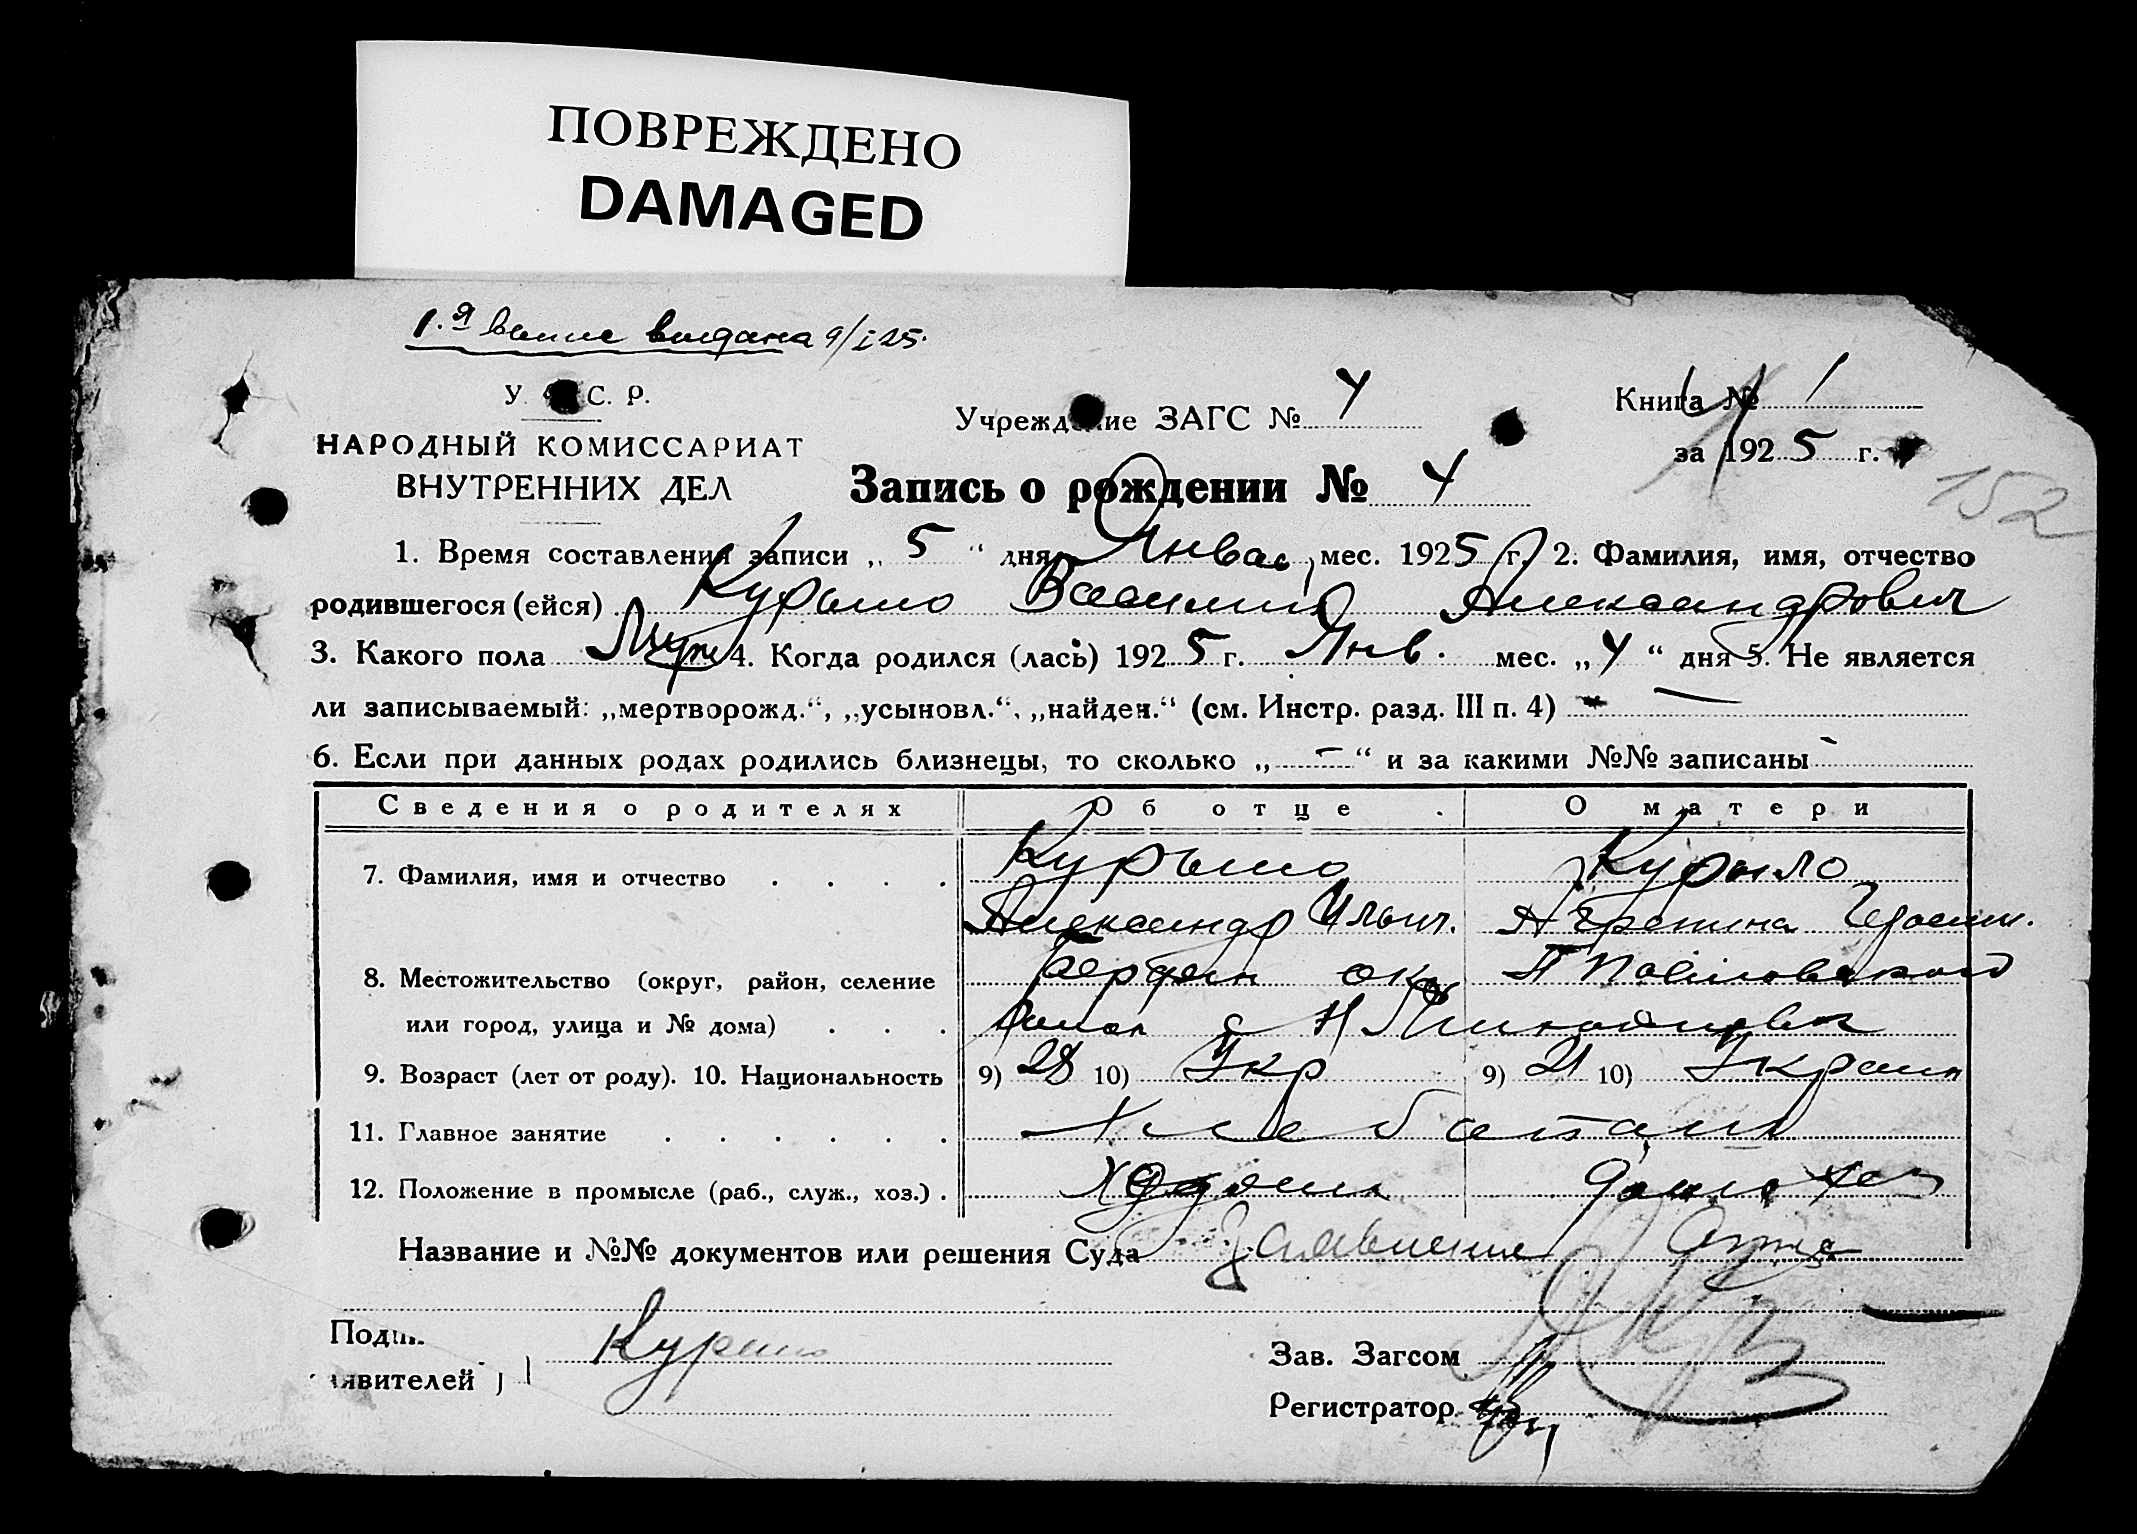 ПОВРЕЖДЕНО
DAMAGED
1.я выпис выдана 9/I 25.
У. С. Р.
Учреждение ЗАГС № 4
Книга № 1
НАРОДНЫЙ КОМИССАРИАТ
ВНУТРЕННИХ ДЕЛ
за 1925 г.
152
Запись о рождении № 4
1. Время составления записи „ 5 “ дня Января мес. 1925 г. 2. Фамилия, имя, отчество
родившегося (ейся) Курыло Василий Александрович
3. Какого пола Муж 4. Когда родился (лась) 1925 г. Янв. мес. „4“ дня 5. Не является
ли записываемый: „мертворожд.“, „усыновл.“, „найден.“ (см. Инстр. разд. III п. 4) —
6. Если при данных родах родились близнецы, то сколько „ — “ и за какими №№ записаны -
Сведения о родителях Об отце О матери
7. Фамилия, имя и отчество Курыло Курыло
Александр Ильич. Агрепина Герасим.
8. Местожительство (округ, район, селение окр
или город, улица и № дома) Район с Н
9. Возраст (лет от роду). 10. Национальность 9) 28 10) Укр 9) 21 10) Украин
11. Главное занятие Хлебопаш
12. Положение в промысле (раб., служ., хоз.)
Название и №№ документов или решения Суда Заявление отца
Подп
явителей Курыло
Зав. Загсом
Регистратор